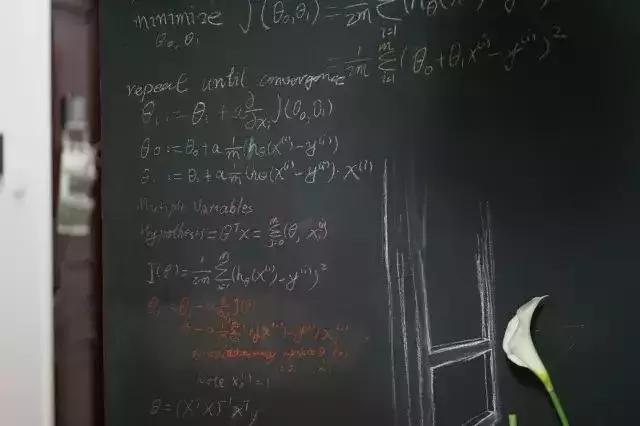 minimize J(θ₀,θ₁) = 1/2m Σ i=1 (hθ(x
θ₀, θ₁
= 1/2m Σ i=1 m (θ₀ + θ₁x⁽ⁱ⁾ - y⁽ⁱ⁾)²
repeat until convergence
θᵢ := θᵢ + α ∂/∂xᵢ J(θ₀,θ₁)
θ₀ := θ₀ + α 1/m (hθ(x⁽ⁱ⁾) - y⁽ⁱ⁾)
:= θ₁ + α 1/m (hθ(x⁽ⁱ⁾ - y⁽ⁱ⁾) · x⁽ⁱ⁾
Multiple Variables
Hypothesis = θᵀx = Σ j=0 m (θ, x
J(θ) = 1/2m Σ i=1 m (hθ(x⁽ⁱ⁾) - y⁽ⁱ⁾)²
J(θ)
update θ
Note x₀⁽ⁱ⁾ = 1
θ = (XᵀX)⁻¹Xᵀy